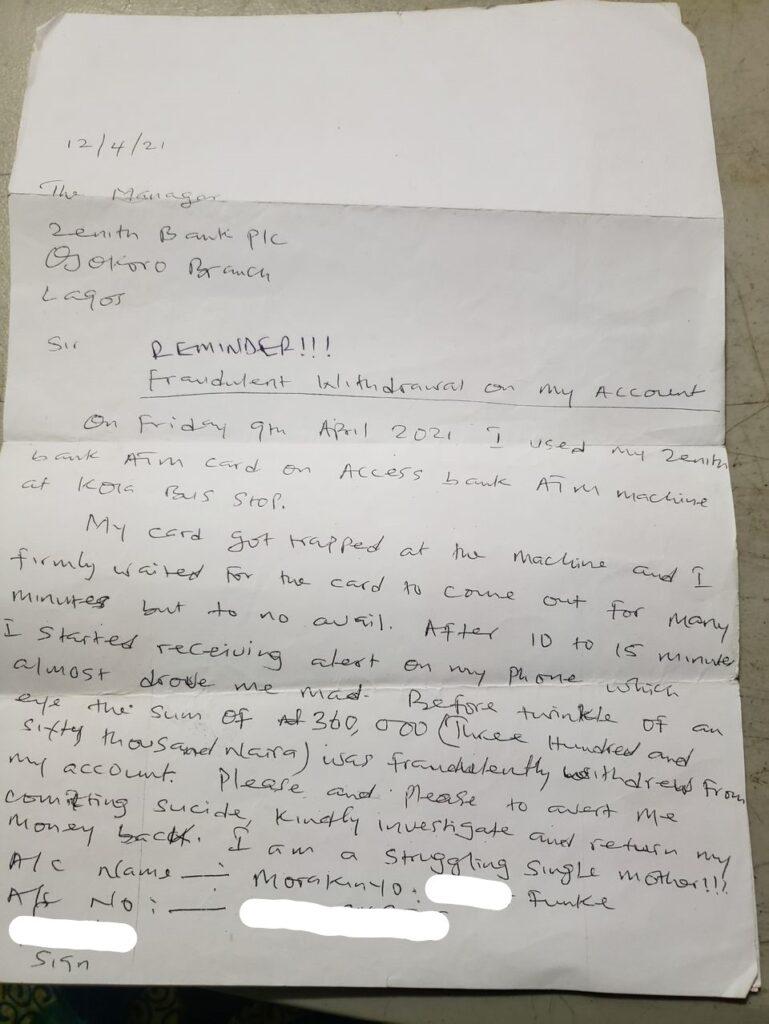 12/4/21
The Manager
Zenith Bank plc
Ojokoro Branch
Lagos
Sir
REMINDER!!!
Fraudulent Withdrawal on my Account
On Friday 9th April 2021 I used my Zenith
bank ATM card on Access bank ATM machine
at Kola Bus Stop.
My card got trapped at the machine and I
firmly waited for the card to come out for many
minutes but to no avail. After 10 to 15 minute
I started receiving alert on my phone which
almost drove me mad. Before twinkle of an
eye the sum of ₦360,000 (Three Hundred and
sixty thousand Naira) was fraudulently withdrew from
my account. Please and please to avert me
comitting suicide, kindly investigate and return my
money back. I am a struggling single mother!!!
A/c Name —: Morakinyo. Funke
A/c No: —
Sign